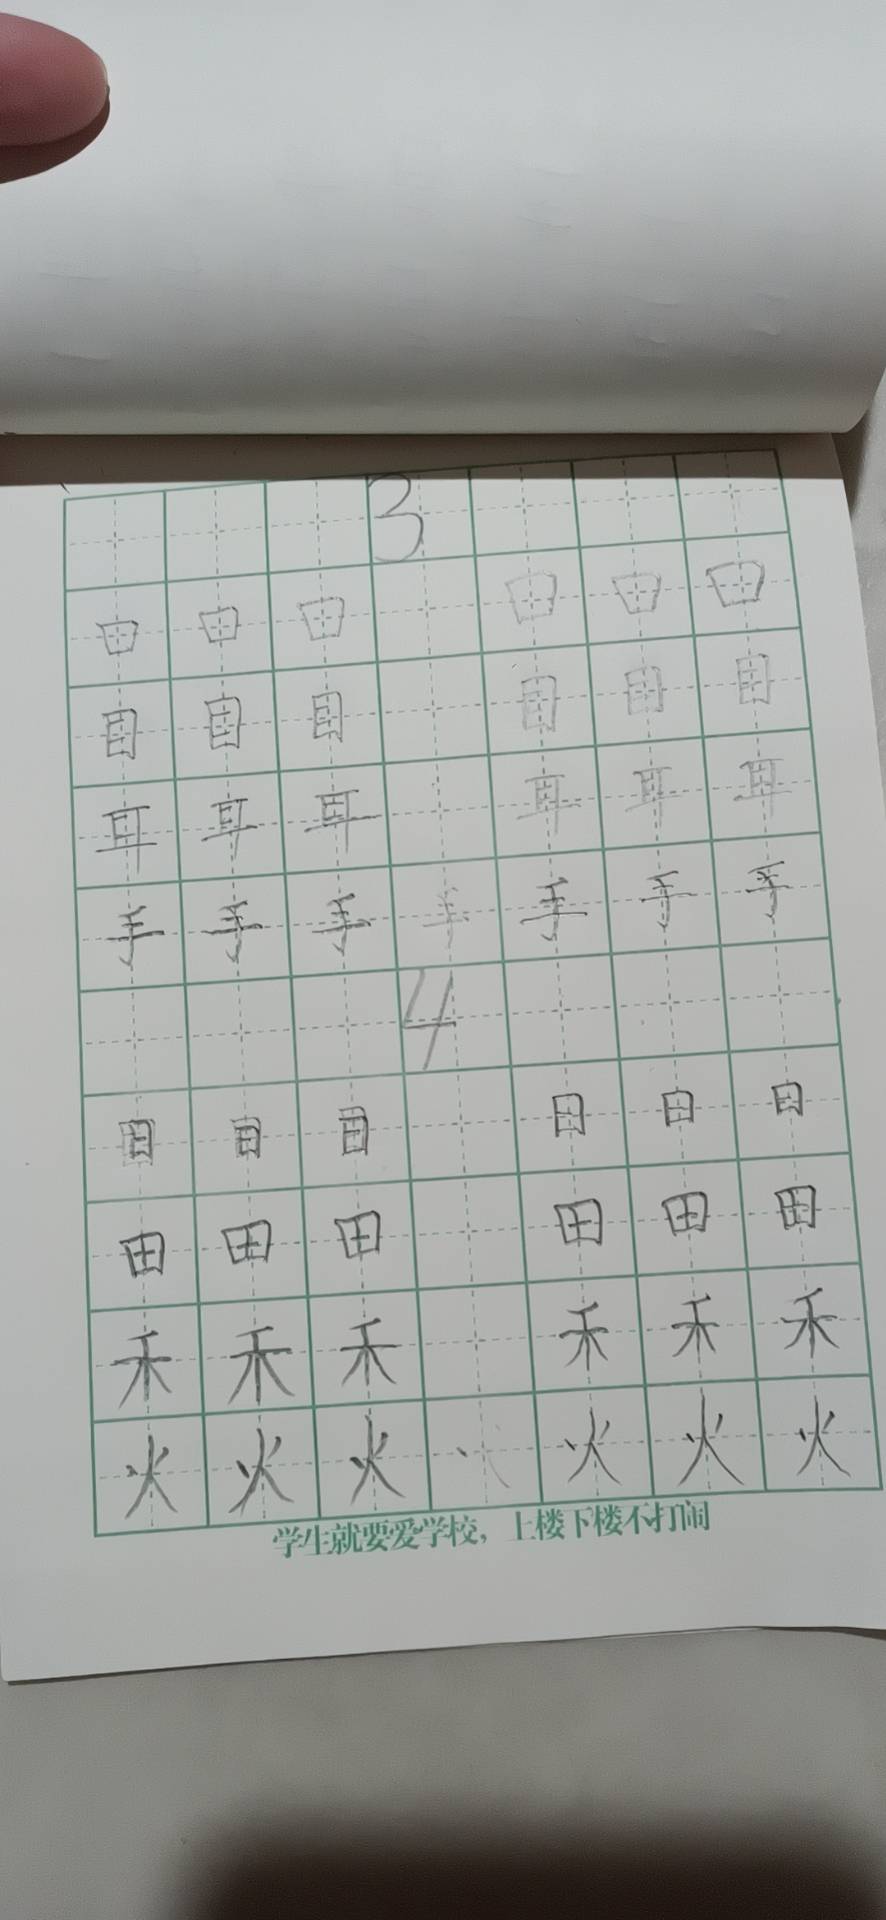 3
口 口 口 口 口 口
目 目 目 目 目 目
耳 耳 耳 耳 耳 耳
手 手 手 手 手 手 手
4
目 目 目 日 日 日
田 田 田 田 田 田
禾 禾 禾 禾 禾 禾
火 火 火 火 火 火
学生就要爱学校，上楼下楼不打闹